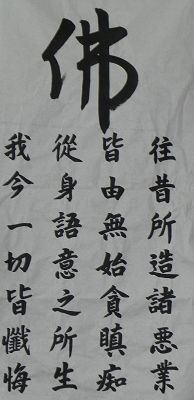 佛
往昔所造諸悪業
皆由無始貪瞋痴
從身語意之所生
我今一切皆懺悔